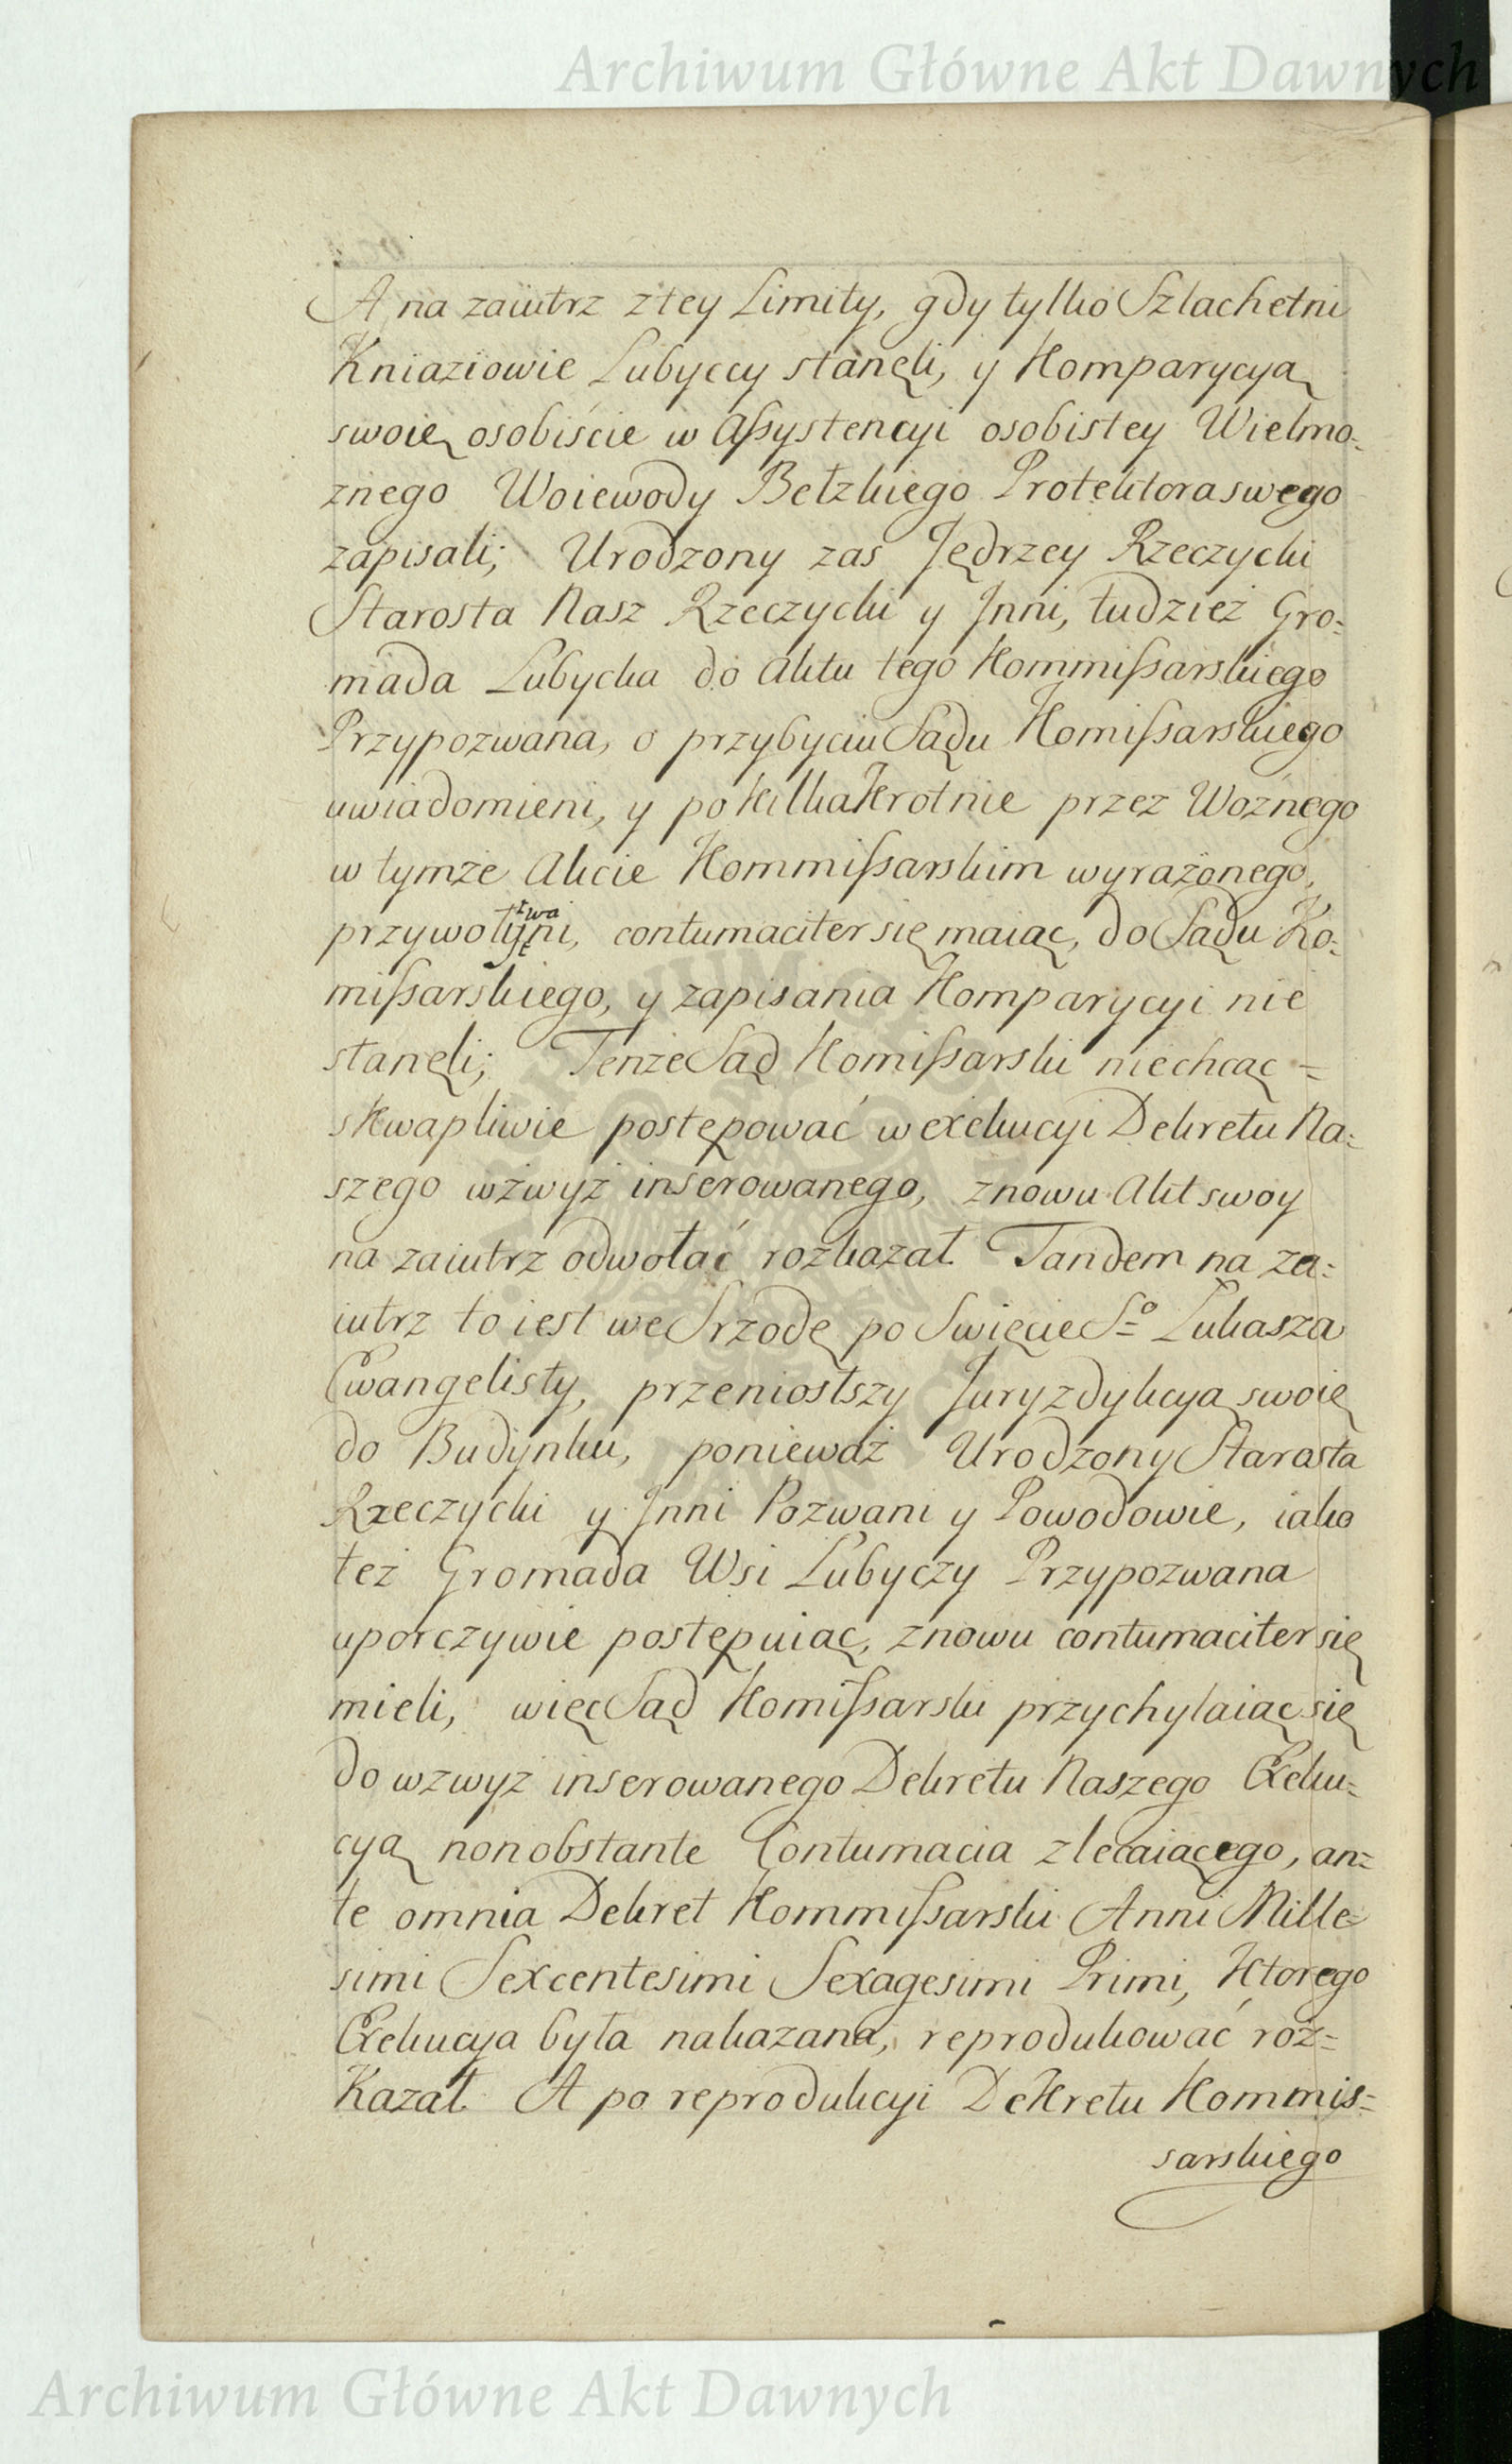 Archiwum Główne Akt Dawnych
A na zaiutrz z tey Limity, gdy tylko Szlachetni
Kniaziowie Lubyccy stanęli, y Komparycyą
swoię osobiście w Assystencyi osobistey Wielmo=
znego Woiewody Bełzkiego Protektora swego
zapisali; Urodzony zas Jędrzey Rzeczycki
Starosta Nasz Rzeczycki y Inni, tudzież Gro=
mada Lubycka do Aktu tego Kommissarskiego
Przypozwana, o przybyciu Sądu Komissarskiego
uwiadomieni, y po kilkakrotnie przez Woźnego
w tymże Akcie Kommissarskim wyrażonego,
contumaciter się maiąc, do Sądu Ko=
missarskiego, y zapisania Komparycyi nie
stanęli; Tenże Sąd Komissarski niechcąc =
skwapliwie postępować w exekucyi Dekretu Na=
szego wżwyż inserowanego, znowu Akt swoy
na zaiutrz odwołać rozkazał. Tandem na za=
iutrz to iest we Srzodę po Swięcie Sº Lukasza
Ewangelisty, przeniosłszy Juryzdykcyą swoię
do Budynku, ponieważ Urodzony Starosta
Rzeczycki y Inni Pozwani y Powodowie, iako
też Gromada Wsi Lubyczy Przypozwana
uporczywie postępuiąc, znowu contumaciter się
mieli, więc Sąd Komissarski przychylaiąc się
do wzwyz inserowanego Dekretu Naszego Exeku=
cyą non obstante Contumacia zlecaiącego, an=
te omnia Dekret Kommissarski Anni Mille=
simi Sexcentesimi Sexagesimi Primi, ktorego
Exekucya była nakazana, reprodukować roz=
kazał. A po reprodukcyi Dekretu Kommis=
sarskiego
Archiwum Główne Akt Dawnych